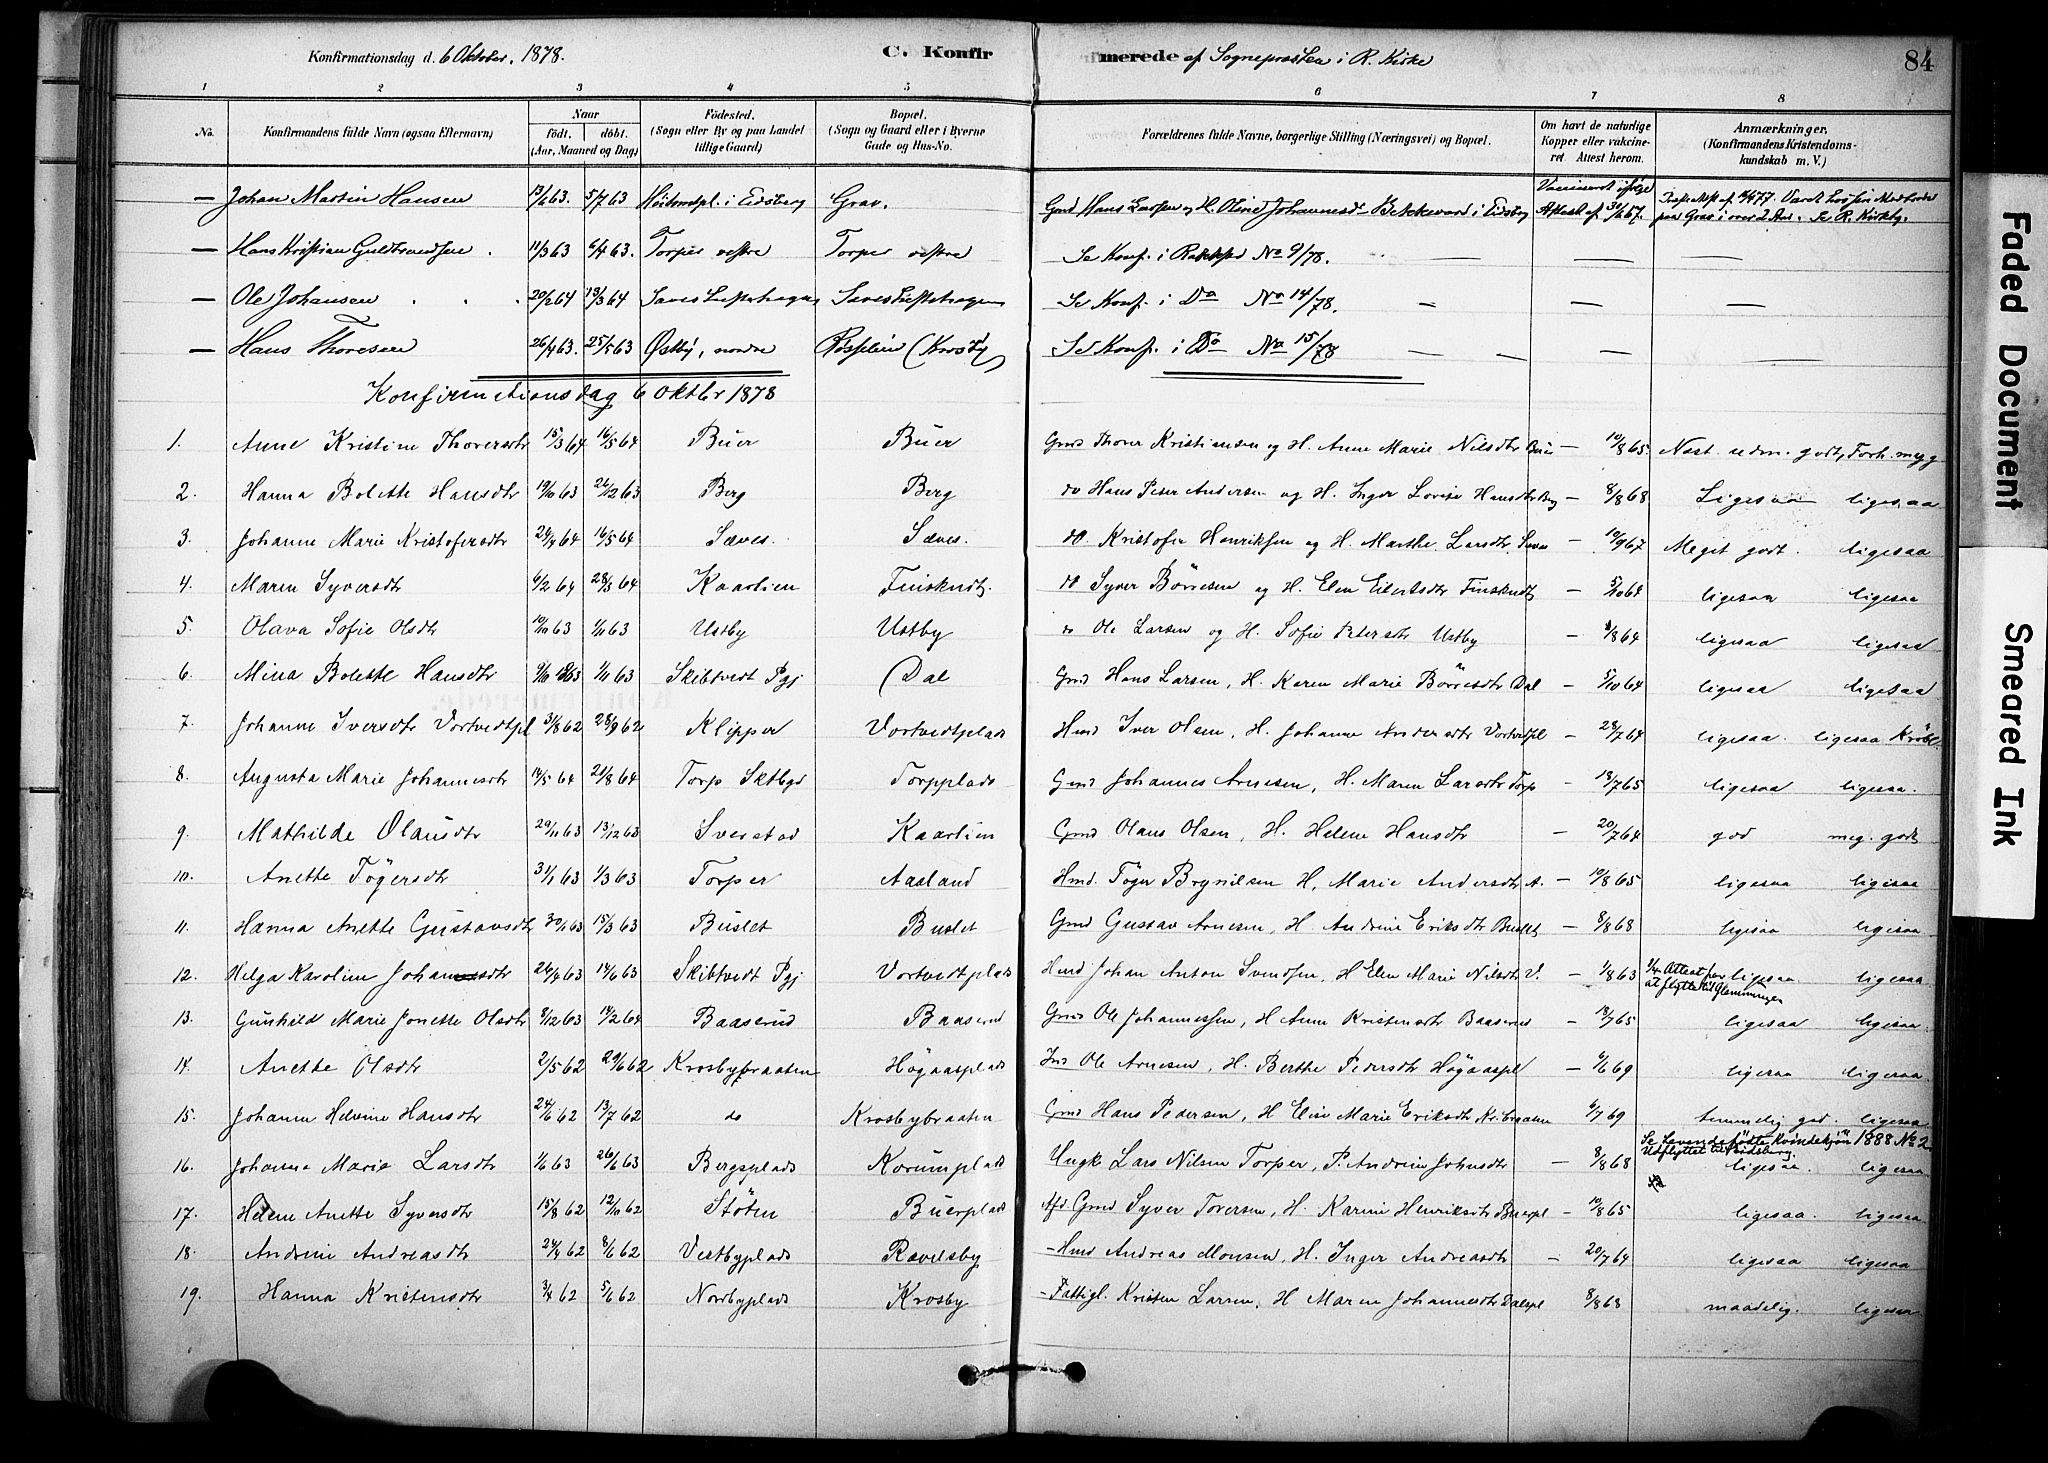 Konfirmationsdag d. 6 Oktober, 1878. C. Konfirmerede af Sognepræsten i R. Kirke 84
1 2 3 4 5 6 7 8
No. Konfirmandens fulde Navn (ogsaa Efternavn) Naar født. døbt. (Aar, Maaned og Dag) Fødested. (Sogn eller By og paa Landet tillige Gaard) Bopæl. (Sogn og Gaard eller i Byerne Gade og Hus-No. Forældrenes fulde Navne, borgerlige Stilling (Næringsvei) og Bopæl. Om havt de naturlige Kopper eller vakcineret. Attest herom. Anmærkninger. (Konfirmandens Kristendomskundskab m. V.)
— Johan Martin Hansen 13/6 63. 5/7 63 i Eidsberg Grav. Gmd Hans Larsen og H. Oline Johannesd. i Eidsberg Vaccineret ifølge Attest af 30/6 67.
— Hans Kristian Guldbrandsen 11/3 63 6/4 63. Torper vestre Torper vestre Se Konf. i Rakkst No 9/78. — — —
— Ole Johansen 20/2 64 13/3 64 Se Konf. i Do No 14/78. — — —
— Hans Thoresen 26/4 63. 25/5 63 Østby, nordre (Krosby) Se Konf. i Do No 15/78 — — — —
Konfirmationsdag 6 Oktbr 1878
1. Anne Kristine Thoversdtr 15/3 64 16/5 64 Buer Buer Gmd Thover Kristiansen og H. Anne Marie Nilsdtr Buer — 10/8 65. Næst. udm. godt, Forh. meg g
2. Hanna Bolette Hansdtr 19/10 63 26/12 63 Berg Berg do Hans Peter Andersen og H. Inger Lovise Hansdtr Berg — 8/8 68 Ligesaa ligesaa
3. Johanne Marie Kristofersdtr 24/4 64 16/5 64 Sæves. Sæves. do Kristofer Henriksen og H. Marthe Larsdtr Sæves — 10/9 67 Meget godt. ligesaa
4. Maren Syversdtr 6/2 64 28/3 64 Kaarlien Finskudt. do Syver Börresen og H. Elen Eilertsdtr Finskudt — 5/10 64 ligesaa ligesaa
5. Olava Sofie Olsdtr 10/10 63 1/11 63 Ustby Ustby do Ole Larsen og H. Sofie Petersdtr Ustby — 8/8 64 ligesaa ligesaa
6. Mina Bolette Hansdtr 9/10 1863 1/11 63 Skibtvedt Pgj Dal Gmd Hans Larsen, H. Karen Marie Börresdtr Dal — 5/10 64 ligesaa ligesaa
7. Johanne Iversdtr Vortvedtpl 31/8 62 28/9 62 Klipper Vortvedtplads Hmd Iver Olsen, H. Johanne Andersdtr Vortvedtpl — 28/7 64 ligesaa. ligesaa
8. Augusta Marie Johannesdtr 14/5 64 21/8 64 Torp Sktbgd Torpplads Gmd Johannes Arnesen, H. Maren Larsdtr Torp — 18/7 65 ligesaa ligesaa.
9. Mathilde Olausdtr 29/11 63 13/12 63 Sverstad Kaarlien Gmd Olaus Olsen, H. Helene Hansdtr — 20/7 64 god meg. godt
10. Anette Tögersdtr 31/1 63 1/3 63 Torper Aasland Hmd. Töger Brynilsen H, Marie Andersdtr A. — 10/8 65 ligesaa ligesaa
11. Hanna Anette Gustavsdtr 30/1 63 15/3 63 Buslet Buslet Gmd Gustav Arnesen, H. Andrine Eriksdtr Buslet — 8/8 68 ligesaa ligesaa
12. Helga Karoline Johansdtr 26/4 63 14/6 63 Skibtvedt Pgj Vortvedtplads Hmd Johan Anton Svendsen, H Elen Marie Nilsdtr V. — 1/8 63 Attest for at flytte til Glemminge ligesaa ligesaa
13. Gunhild Marie Jonette Olsdtr 8/12 63 14/2 64 Baaserud Baaserud Gmd Ole Johannessen, H Anne Kristensdtr Baaserud — 18/7 65 ligesaa ligesaa.
14. Anette Olsdtr 2/5 62 29/6 62 Krosbybraaten Högaasplads Ole Arnesen, H. Berthe Pedersdtr Högaaspl — 9/6 69 ligesaa ligesaa.
15. Johanne Helvine Hansdtr 24/6 62 13/7 62 do Krosbybraaten Gmd Hans Pedersen, H Elise Marie Eriksdtr Kr.braaten 6/7 69 temmelig god. ligesaa
16. Johanne Marie Larsdtr 1/6 63 26/6 63 Bergsplads Korumplads Ungk Lars Nilsen Torper, P. Andrine Johnsdtr — 8/8 68 Se Levendefødte Kvindekjøn 1888 No 2 Udflyttet til Eidsberg. ligesaa. ligesaa
17. Helene Anette Syversdtr 15/8 62 12/10 62 Stöten Buerplads Afd Gmd Syver Toversen, H. Karine Henriksdtr Buerpl — 10/8 65 ligesaa. ligesaa.
18. Andrine Andreasdtr 24/4 62 8/6 62 Vestbyplads Ravelsby — Hmd Andreas Monsen, H. Inger Andreasdtr — 20/7 64 ligesaa ligesaa
19. Hanna Kristensdtr 3/4 62 5/6 62 Nordbyplads Krosby — Fattigl. Kristen Larsen, H Maren Johannesdtr Dalspl 8/8 68 maadelig. ligesaa
Faded Document
Smeared Ink